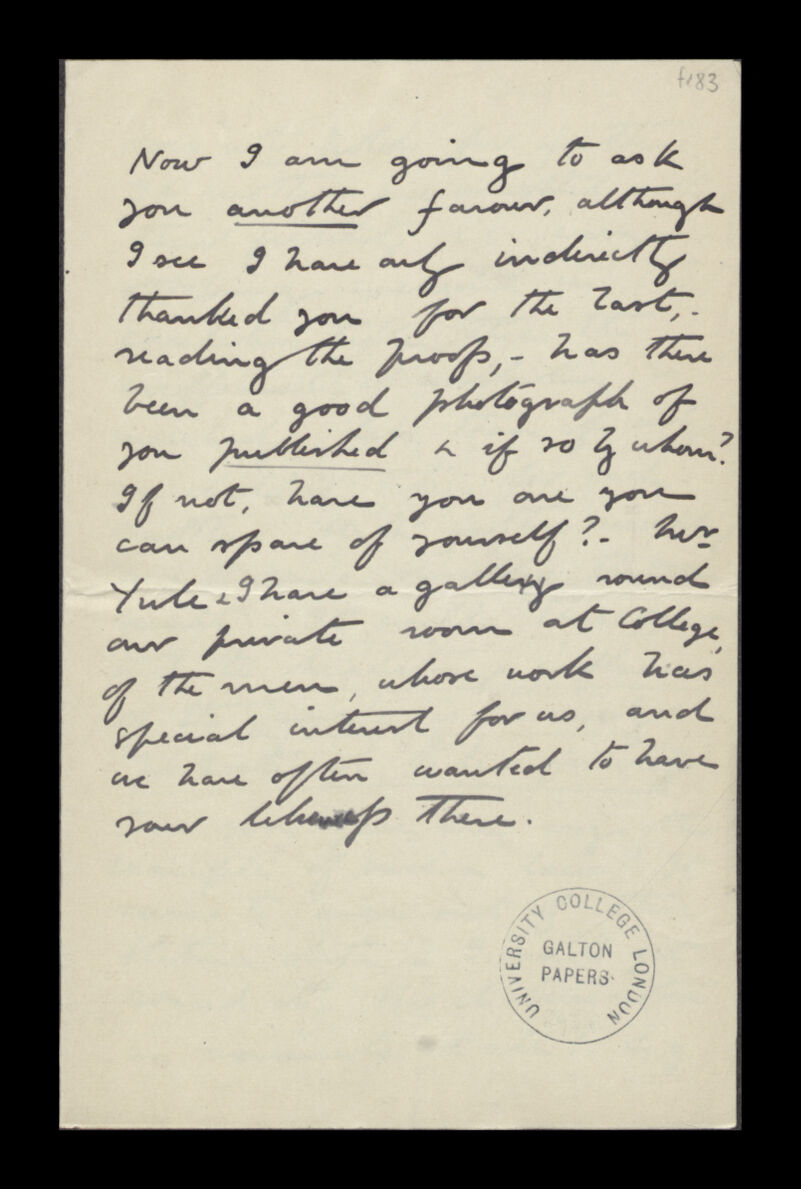 f183
Now I am going to ask
you another favour, although
I see I have only indirectly
thanked you for the last, -
reading the proofs, - has there
been a good photograph of
you published & if so by whom?
If not, have you one you
can spare of yourself? - Mr
Yule & I have a gallery round
our private room at College,
of the men, whose work has
special interest for us, and
we have often wanted to have
your likeness there.
UNIVERSITY COLLEGE LONDON
GALTON
PAPERS